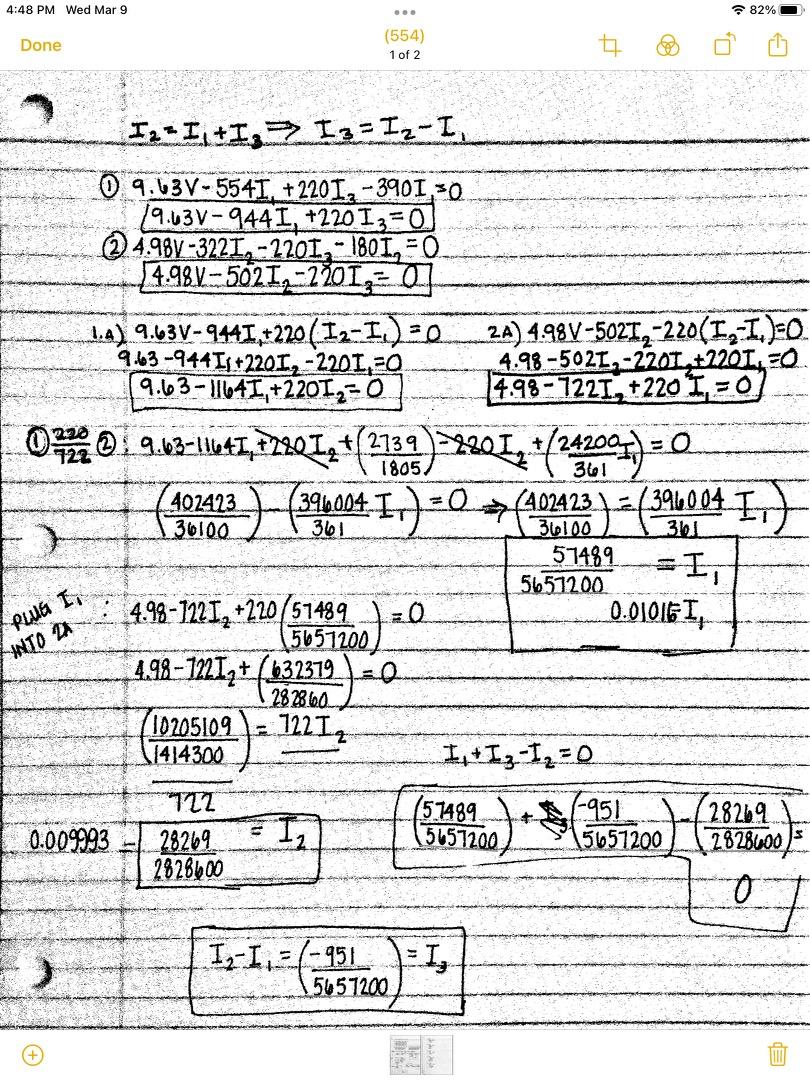 4:48 PM Wed Mar 9
82%
Done
(554)
1 of 2
I₂ = I₁ + I₃ ⇒ I₃ = I₂ - I₁
① 9.63V - 554I₁ + 220I₃ - 390I₁ = 0
9.63V - 944I₁ + 220I₃ = 0
② 4.98V - 322I₂ - 220I₃ - 180I₂ = 0
4.98V - 502I₂ - 220I₃ = 0
1.A) 9.63V - 944I₁ + 220(I₂ - I₁) = 0
9.63 - 944I₁ + 220I₂ - 220I₁ = 0
9.63 - 1164I₁ + 220I₂ = 0
2A) 4.98V - 502I₂ - 220(I₂ - I₁) = 0
4.98 - 502I₂ - 220I₂ + 220I₁ = 0
4.98 - 722I₂ + 220I₁ = 0
① 220/722 ② : 9.63 - 1164I₁ + 220I₂ + (2739/1805) - 220I₂ + (24200/361 I₁) = 0
(402423/36100) - (396004/361 I₁) = 0 ⇒ (402423/36100) = (396004/361 I₁)
57489/5657200 = I₁
0.01016 = I₁
PLUG I₁ INTO 2A : 4.98 - 722I₂ + 220(57489/5657200) = 0
4.98 - 722I₂ + (632379/282860) = 0
(10205109/1414300) = 722I₂
722
0.009993 = 28269/2828600 = I₂
I₁ + I₃ - I₂ = 0
(57489/5657200) + (-951/5657200) - (28269/2828600) =
0
I₂ - I₁ = (-951/5657200) = I₃